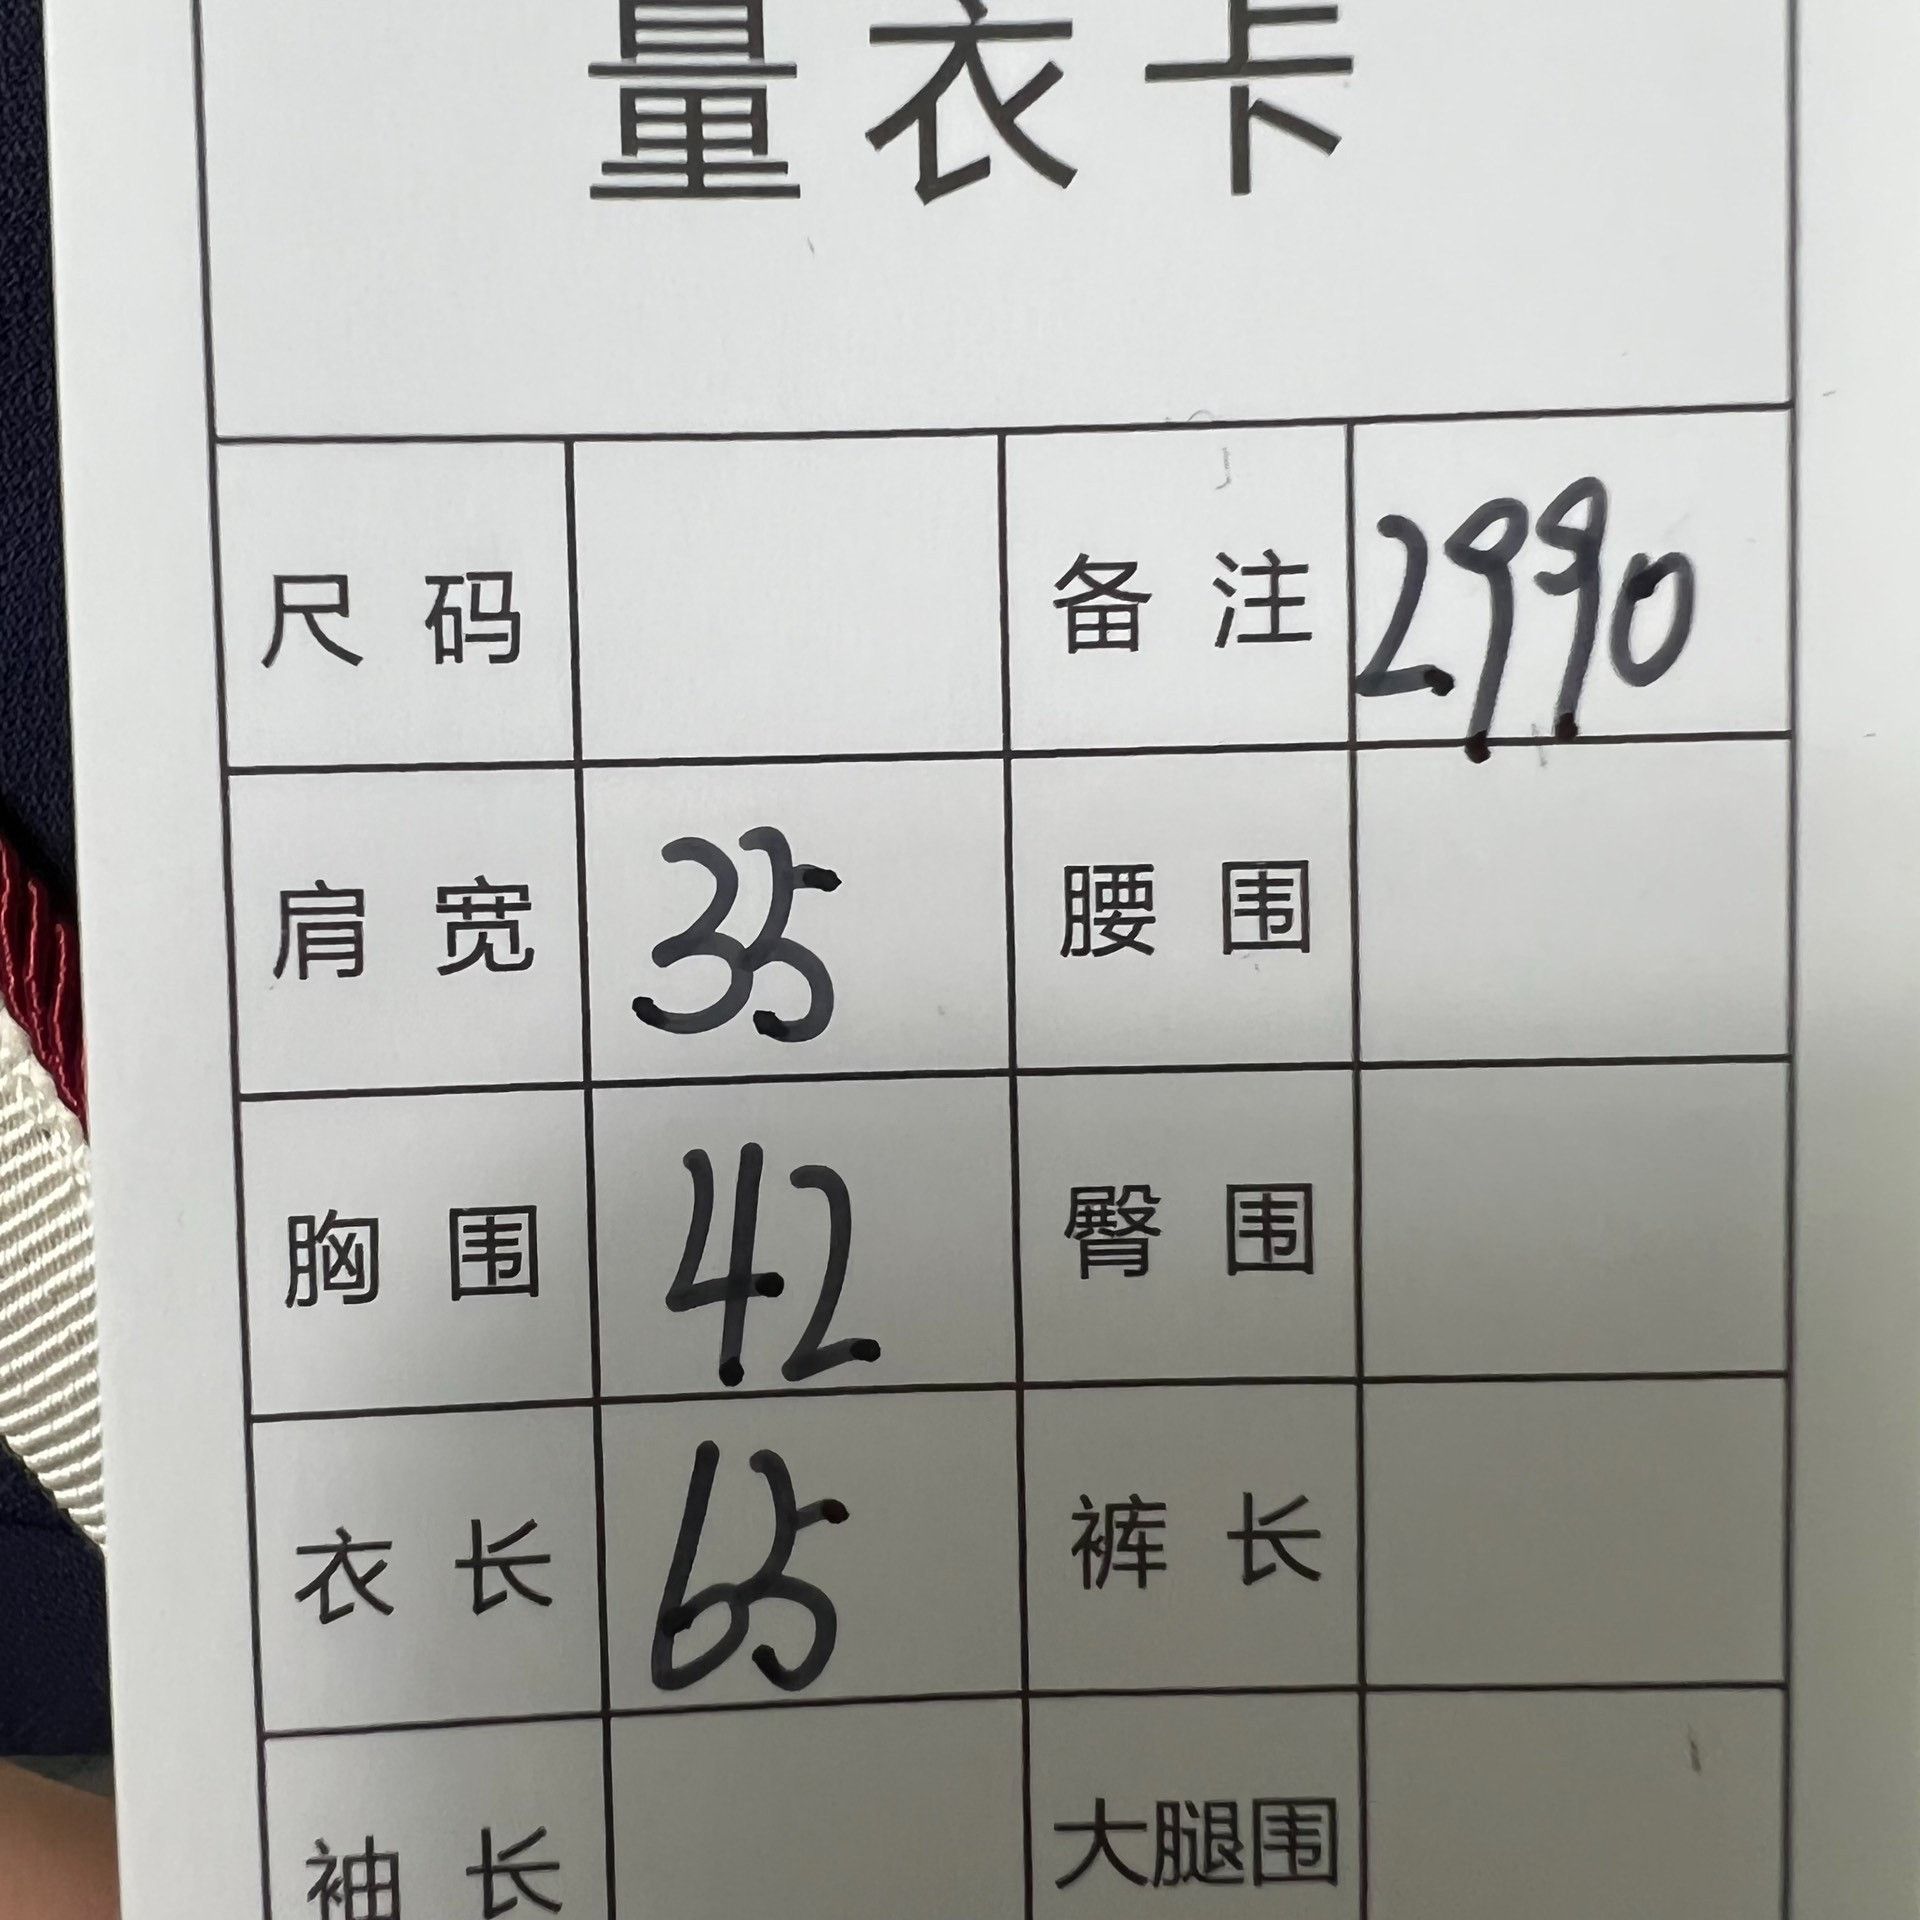 量衣卡
尺码 备注 2990
肩宽 35 腰围
胸围 42 臀围
衣长 65 裤长
袖长 大腿围